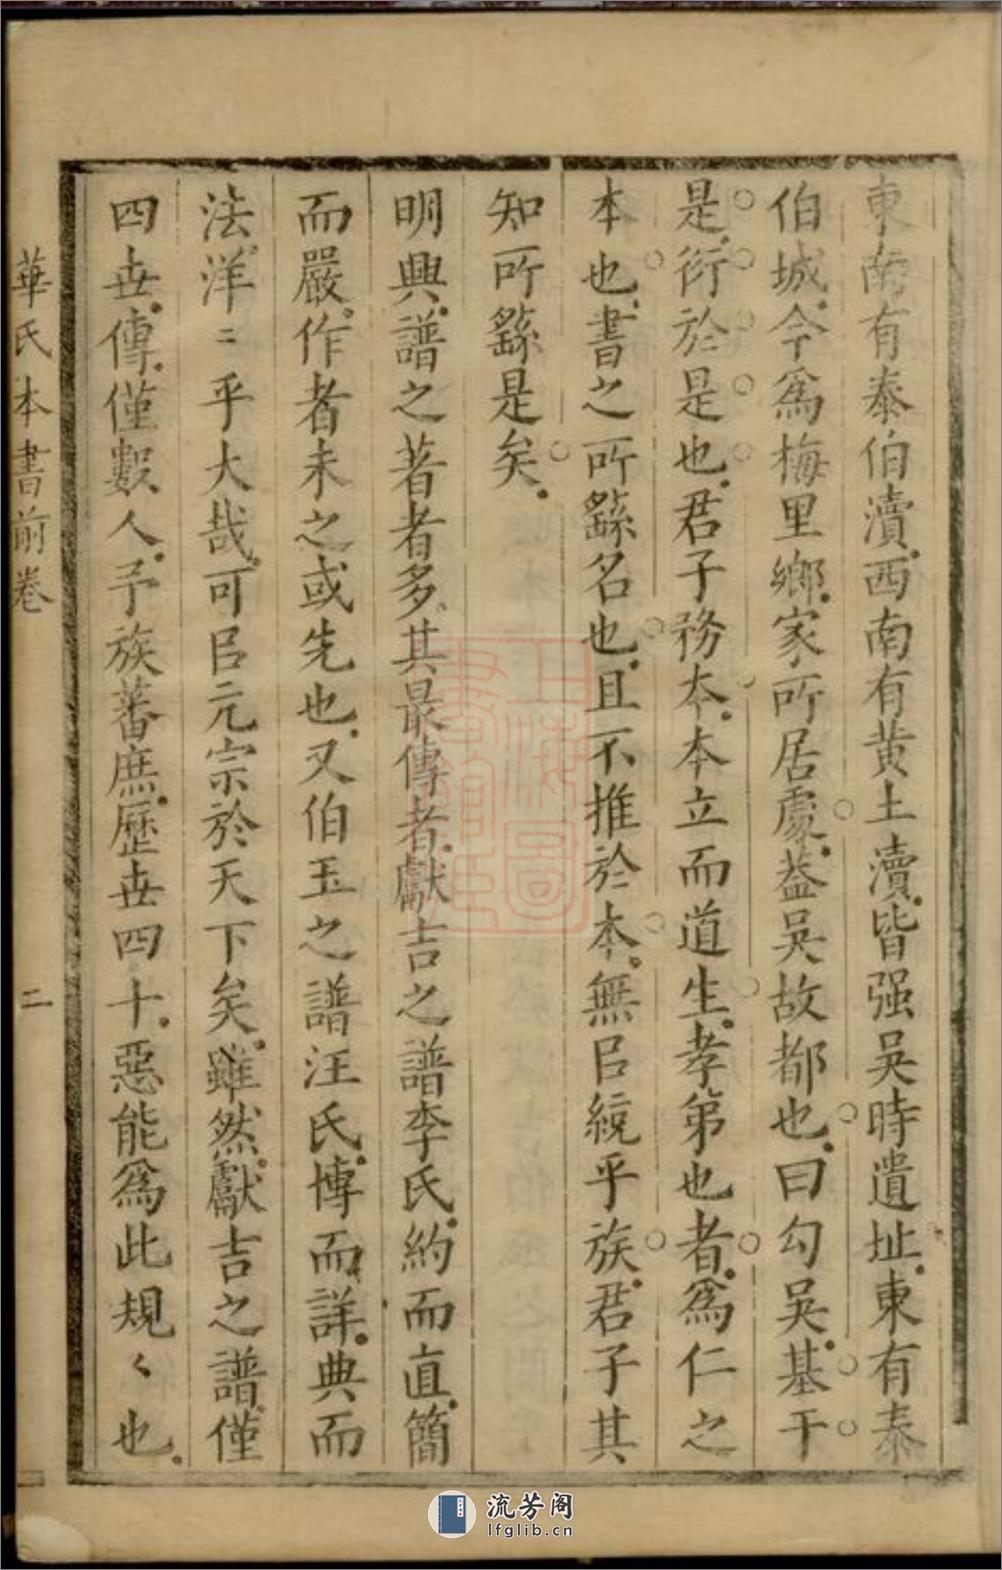 東南有泰伯瀆西南有黄土瀆皆强吳時遺址東有泰
伯城今爲梅里鄉家所居處葢吳故都也曰勾吳基于
是衍於是也君子務本本立而道生孝弟也者爲仁之
本也書之所繇名也且不推於本無㠯統乎族君子其
知所繇是矣
明興譜之著者多其最傳者獻吉之譜李氏約而直簡
而嚴作者未之或先也又伯玉之譜汪氏博而詳典而
法洋〻乎大哉可㠯元宗於天下矣雖然獻吉之譜僅
四世傳僅數人予族蕃庶歷世四十惡能爲此規〻也
華氏本書前卷
二
上海圖書館藏
流芳阁
lfglib.cn